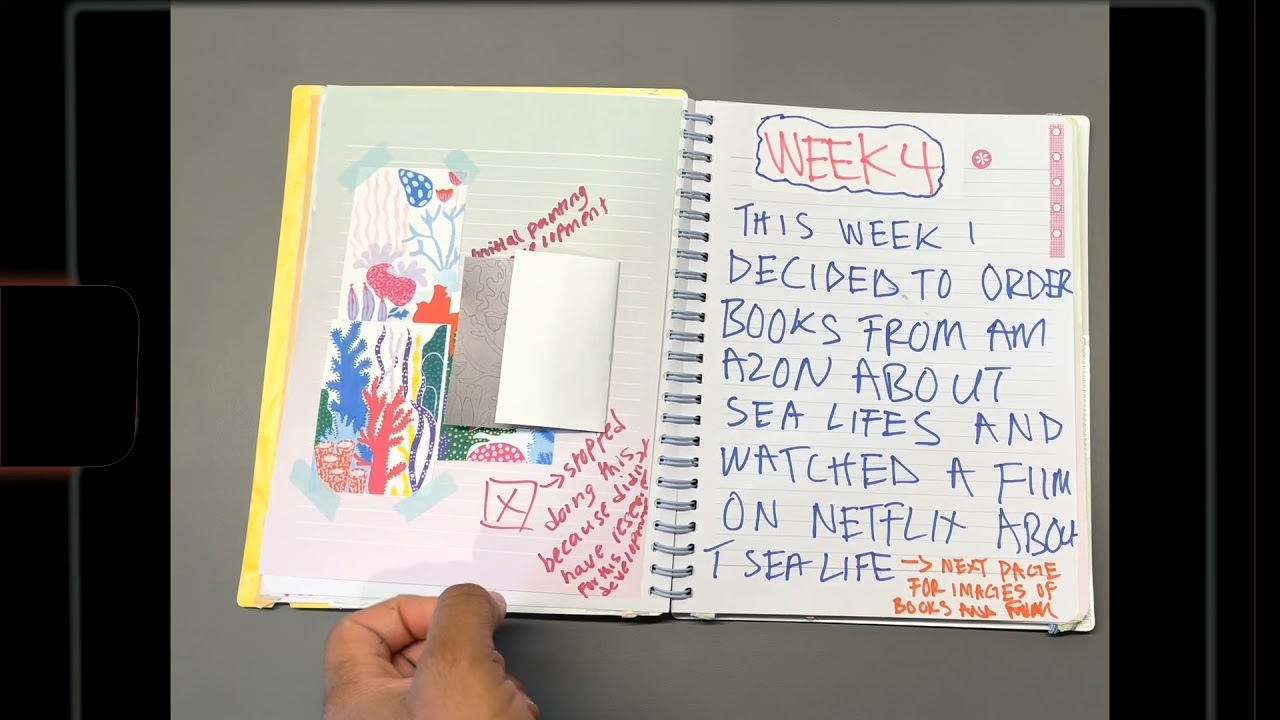 Initial painting
development
X → stopped
doing this
because didn't
have research
for this
development
WEEK 4
THIS WEEK I
DECIDED TO ORDER
BOOKS FROM AM
AZON ABOUT
SEA LIFES AND
WATCHED A FIIM
ON NETFLIX ABOU
T SEA LIFE → NEXT PAGE
FOR IMAGES OF
BOOKS AND